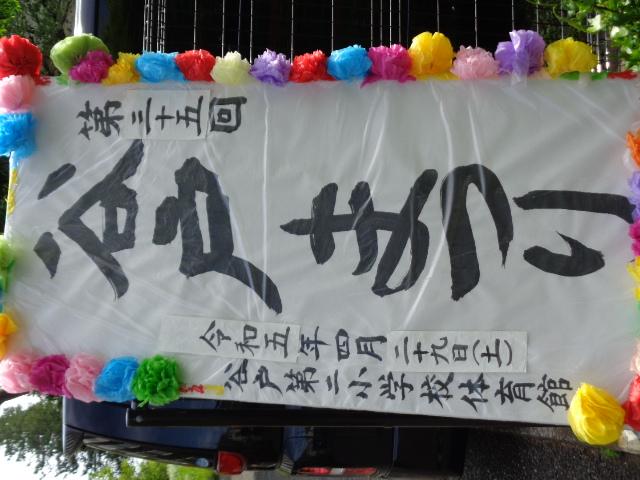 第三十五回
谷戸まつり
令和五年四月二十九日(土)
谷戸第二小学校体育館